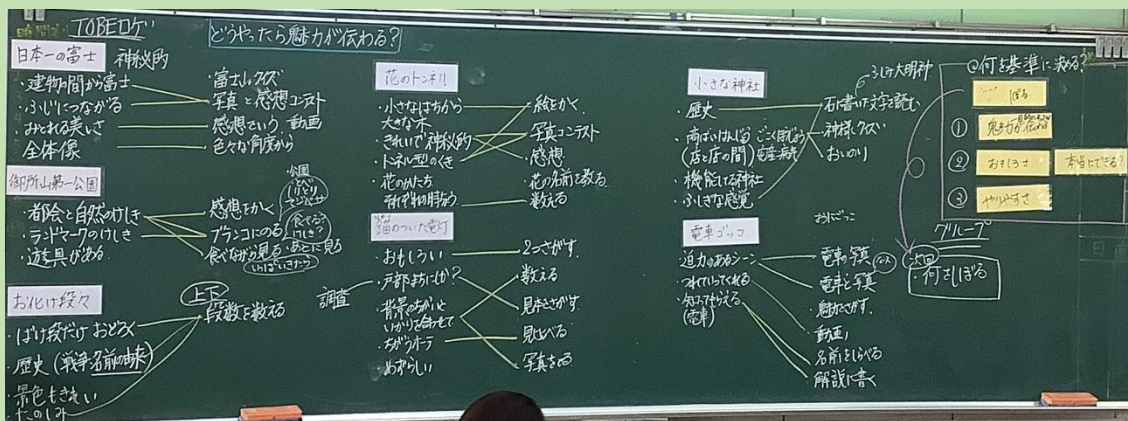 TOBEロゲ
どうやったら魅力が伝わる?
日本一の富士 神秘的
・建物の間から富士
・ふじにつながる
・みとれる美しさ
・全体像
・富士山クイズ
・写真と感想コンテスト
・感想でいう 動画
・色々な角度から
御所山第一公園
・都会と自然のけしき
・ランドマークのけしき
・遊具がある
公園
・感想をかく
・ブランコにのる
・食べながら見る
お化け段々
・ばけ段だけ おどろく
・歴史(戦争・名前の由来)
・景色もきれい
・たのしみ
上下
段数を数える
花のトンネル
・小さなはちから
大きな木
・きれいで神秘的
・トネル型のくき
・花のかたち
それぞれの
・絵をかく
・写真コンテスト
・感想
・花の名前を
・数える
猫のついた電灯
・おもしろい
調査
・背景のちがい
・めずらしい
・2つさがす
・数える
・見本をさがす
・見比べる
・写真をとる
小さな神社
ふじみ大明神
・歴史
(店と店の間)
・機能してる神社
・ふしぎな感覚
・石に書いた文字を読む
・神様クイズ
・おいのり
電車ゴッコ
おにごっこ
・迫力のあるシーン
・つれていってくれる
・知ってもらえる
(電車)
・電車の写真
・電車と写真
・魅力をさがす
・動画
・名前をしらべる
・解説に書く
◎何を基準に決める?
① 魅力が伝わる
② おもしろさ 本当にできる?
③ やりやすさ
グループ
次回
何さしぼる